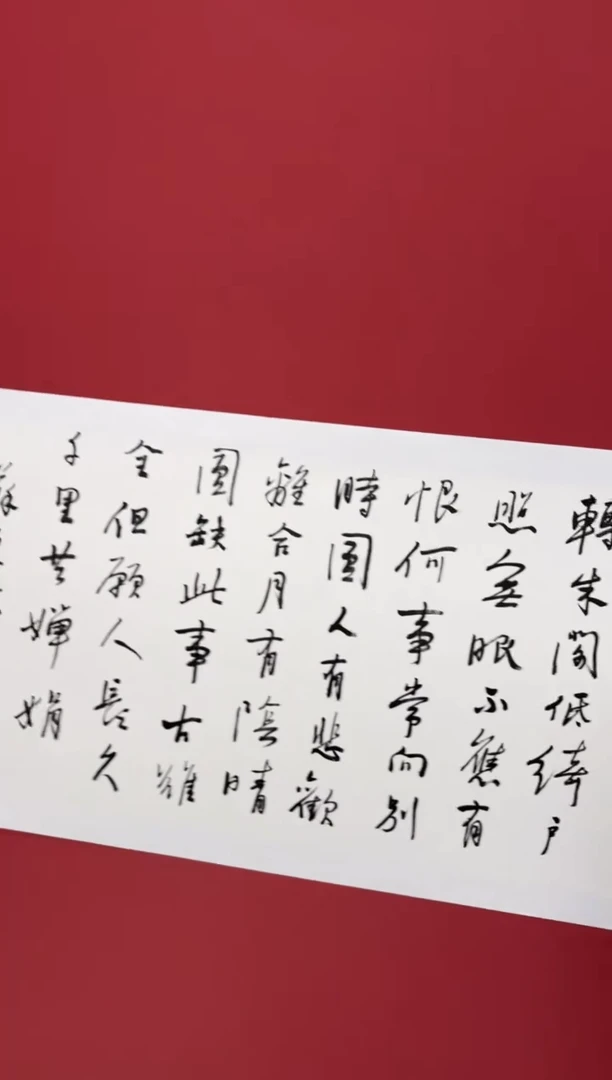 轉朱閣低綺戶
照無眠不應有
恨何事常向別
時圓人有悲歡
離合月有陰晴
圓缺此事古難
全但願人長久
千里共嬋娟